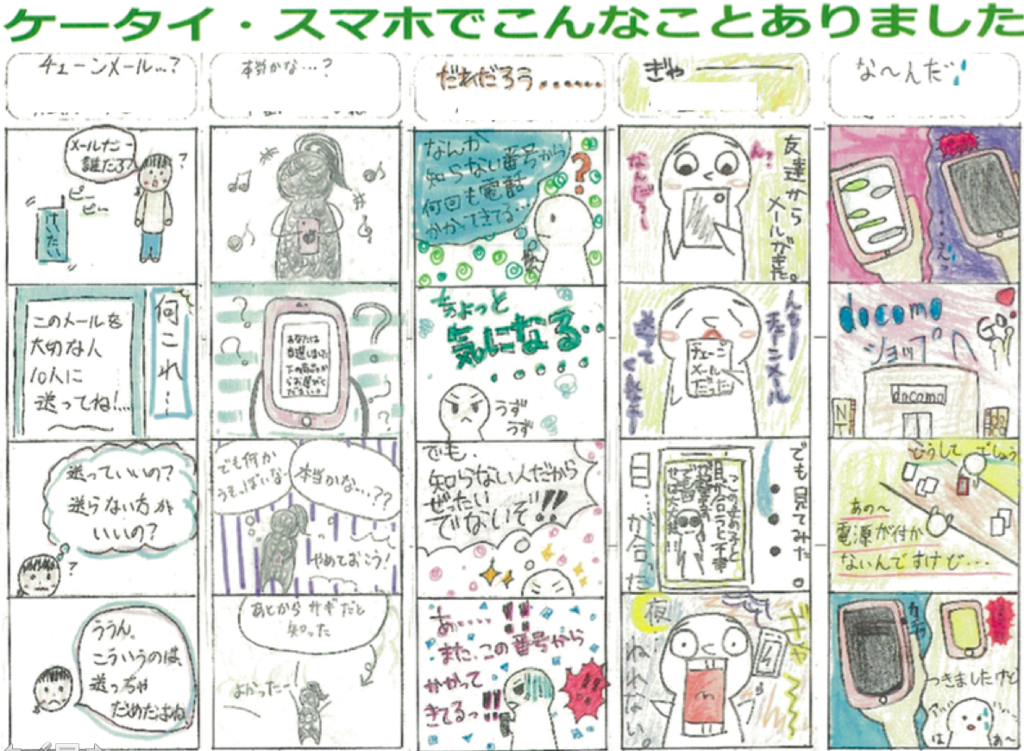 ケータイ・スマホでこんなことありました
チェーンメール…?
メールだー
誰だろ?
ピー
ピー
けいたい
何これー
このメールを
大切な人
10人に
送ってね!…
送っていいの?
送らない方が
いいの?
ううん。
こういうのは、
送っちゃ
だめだはね。
本当かな…?
あなたは
当選しました
でも何か
うそっぽいな
本当かな…??
やめておこう!
あとから サギだと
知った
よかったー
だれだろう……
なんか
知らない番号から
何回も電話
かかってきてる…
ちょっと
気になる…
うず
うず
でも、
知らない人だから
ぜったい
でないぞ!!
あ……!!
また、この番号から
かかって
きてるっ!!
ぎゃー
友達から
メールがきた。
ん?
なんだ〜
んもーチェーンメール
送ってくんなー
チェーン
メール
だった
でも見てみた。
目…が合った
夜
ねれない。
ギャー
な〜んだ
docomo
ショップ
Go!
docomo
どうして
でしょう
あの〜
電源が付か
ないんですけど…
つきましたけど
は
あ〜